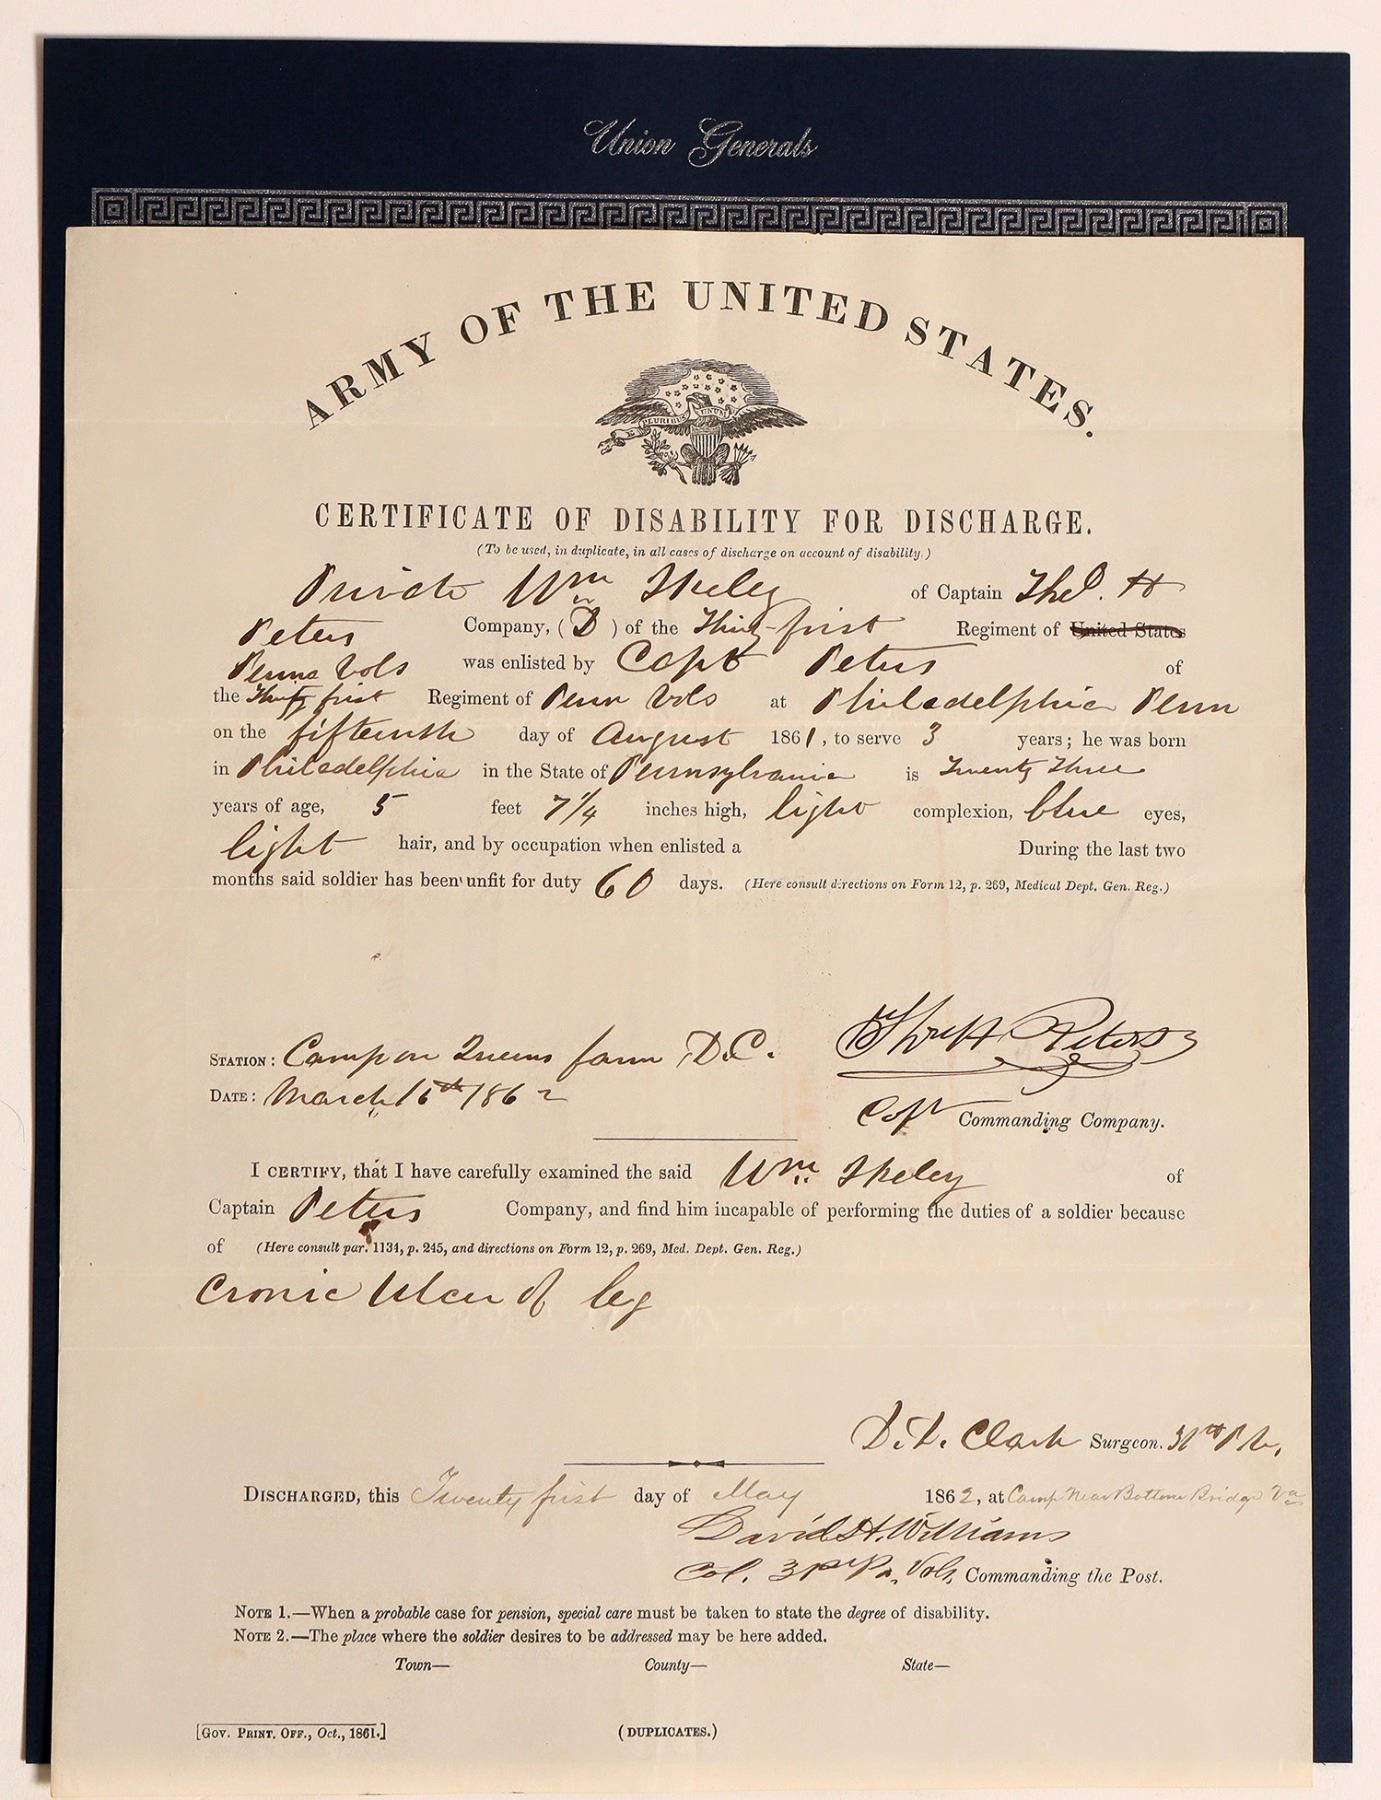 Union Generals
ARMY OF THE UNITED STATES.
PLURIBUS UNUM
CERTIFICATE OF DISABILITY FOR DISCHARGE.
(To be used, in duplicate, in all cases of discharge on account of disability.)
Private Wm of Captain H
Peters Company, (D) of the Thirty-first Regiment of United States
Penna Vols was enlisted by Capt Peters of
the Thirty first Regiment of Penn Vols at Philadelphia Penn
on the fifteenth day of August 1861, to serve 3 years; he was born
in Philadelphia in the State of Pennsylvania is Twenty Three
years of age, 5 feet 7 1/4 inches high, light complexion, blue eyes,
light hair, and by occupation when enlisted a During the last two
months said soldier has been unfit for duty 60 days. (Here consult directions on Form 12, p. 269, Medical Dept. Gen. Reg.)
STATION: Camp on Queens farm D.C. H Peters
DATE: March 15th 1862
Capt Commanding Company.
I CERTIFY, that I have carefully examined the said Wm of
Captain Peters Company, and find him incapable of performing the duties of a soldier because
of (Here consult par. 1134, p. 245, and directions on Form 12, p. 269, Med. Dept. Gen. Reg.)
Cronic Ulcer of leg
Clark Surgeon. 31
DISCHARGED, this Twenty first day of May 1862, at Camp Near Bottoms Bridge Va
David H. Williams
Col. 31st Pa. Vols, Commanding the Post.
NOTE 1.—When a probable case for pension, special care must be taken to state the degree of disability.
NOTE 2.—The place where the soldier desires to be addressed may be here added.
Town— County— State—
[GOV. PRINT. OFF., Oct., 1861.] (DUPLICATES.)